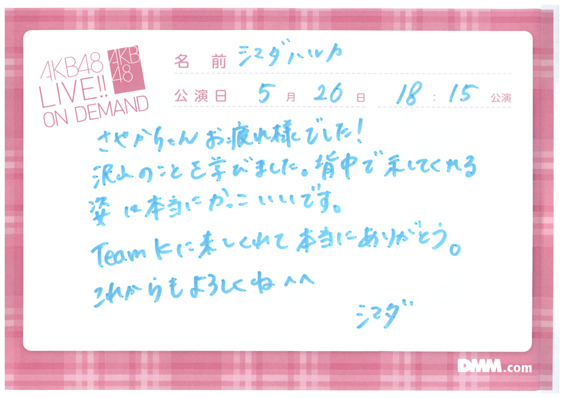 AKB48
LIVE!!
ON DEMAND
AKB
48
名前 シマダハルカ
公演日 5月26日 18:15公演
さやかちゃんお疲れ様でした!
沢山のことを学びました。背中で示してくれる
姿は本当にかっこいいです。
Team Kに来てくれて本当にありがとう。
これからもよろしくね^^
シマダ
DMM.com